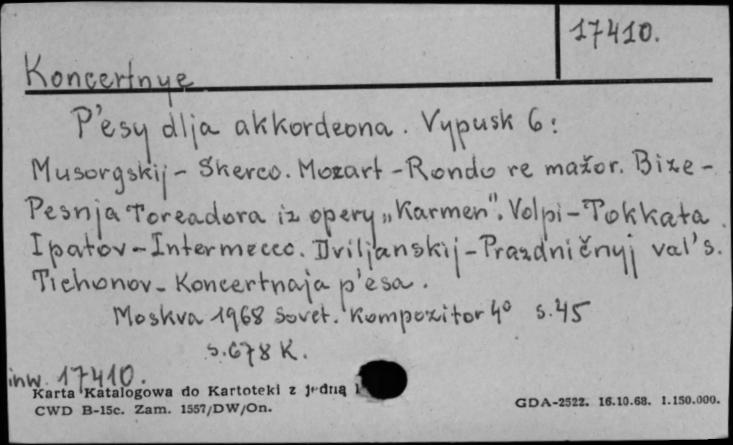 17410.
Koncertnye
P'esy dlja akkordeona. Vypusk 6:
Musorgskij - Skerco. Mozart - Rondo re mažor. Bize -
Pesnja Toreadora iz opery „Karmen". Volpi - Tokkata.
Ipatov - Intermecco. Dviljanskij - Prazdničnyj val's.
Tichonov - Koncertnaja p'esa.
Moskva 1968 Sovet. Kompozitor 4° s.45
s.678 K.
inw. 17410.
Karta Katalogowa do Kartoteki z jedną
CWD B-15c. Zam. 1557/DW/On.
GDA-2522. 16.10.68. 1.150.000.